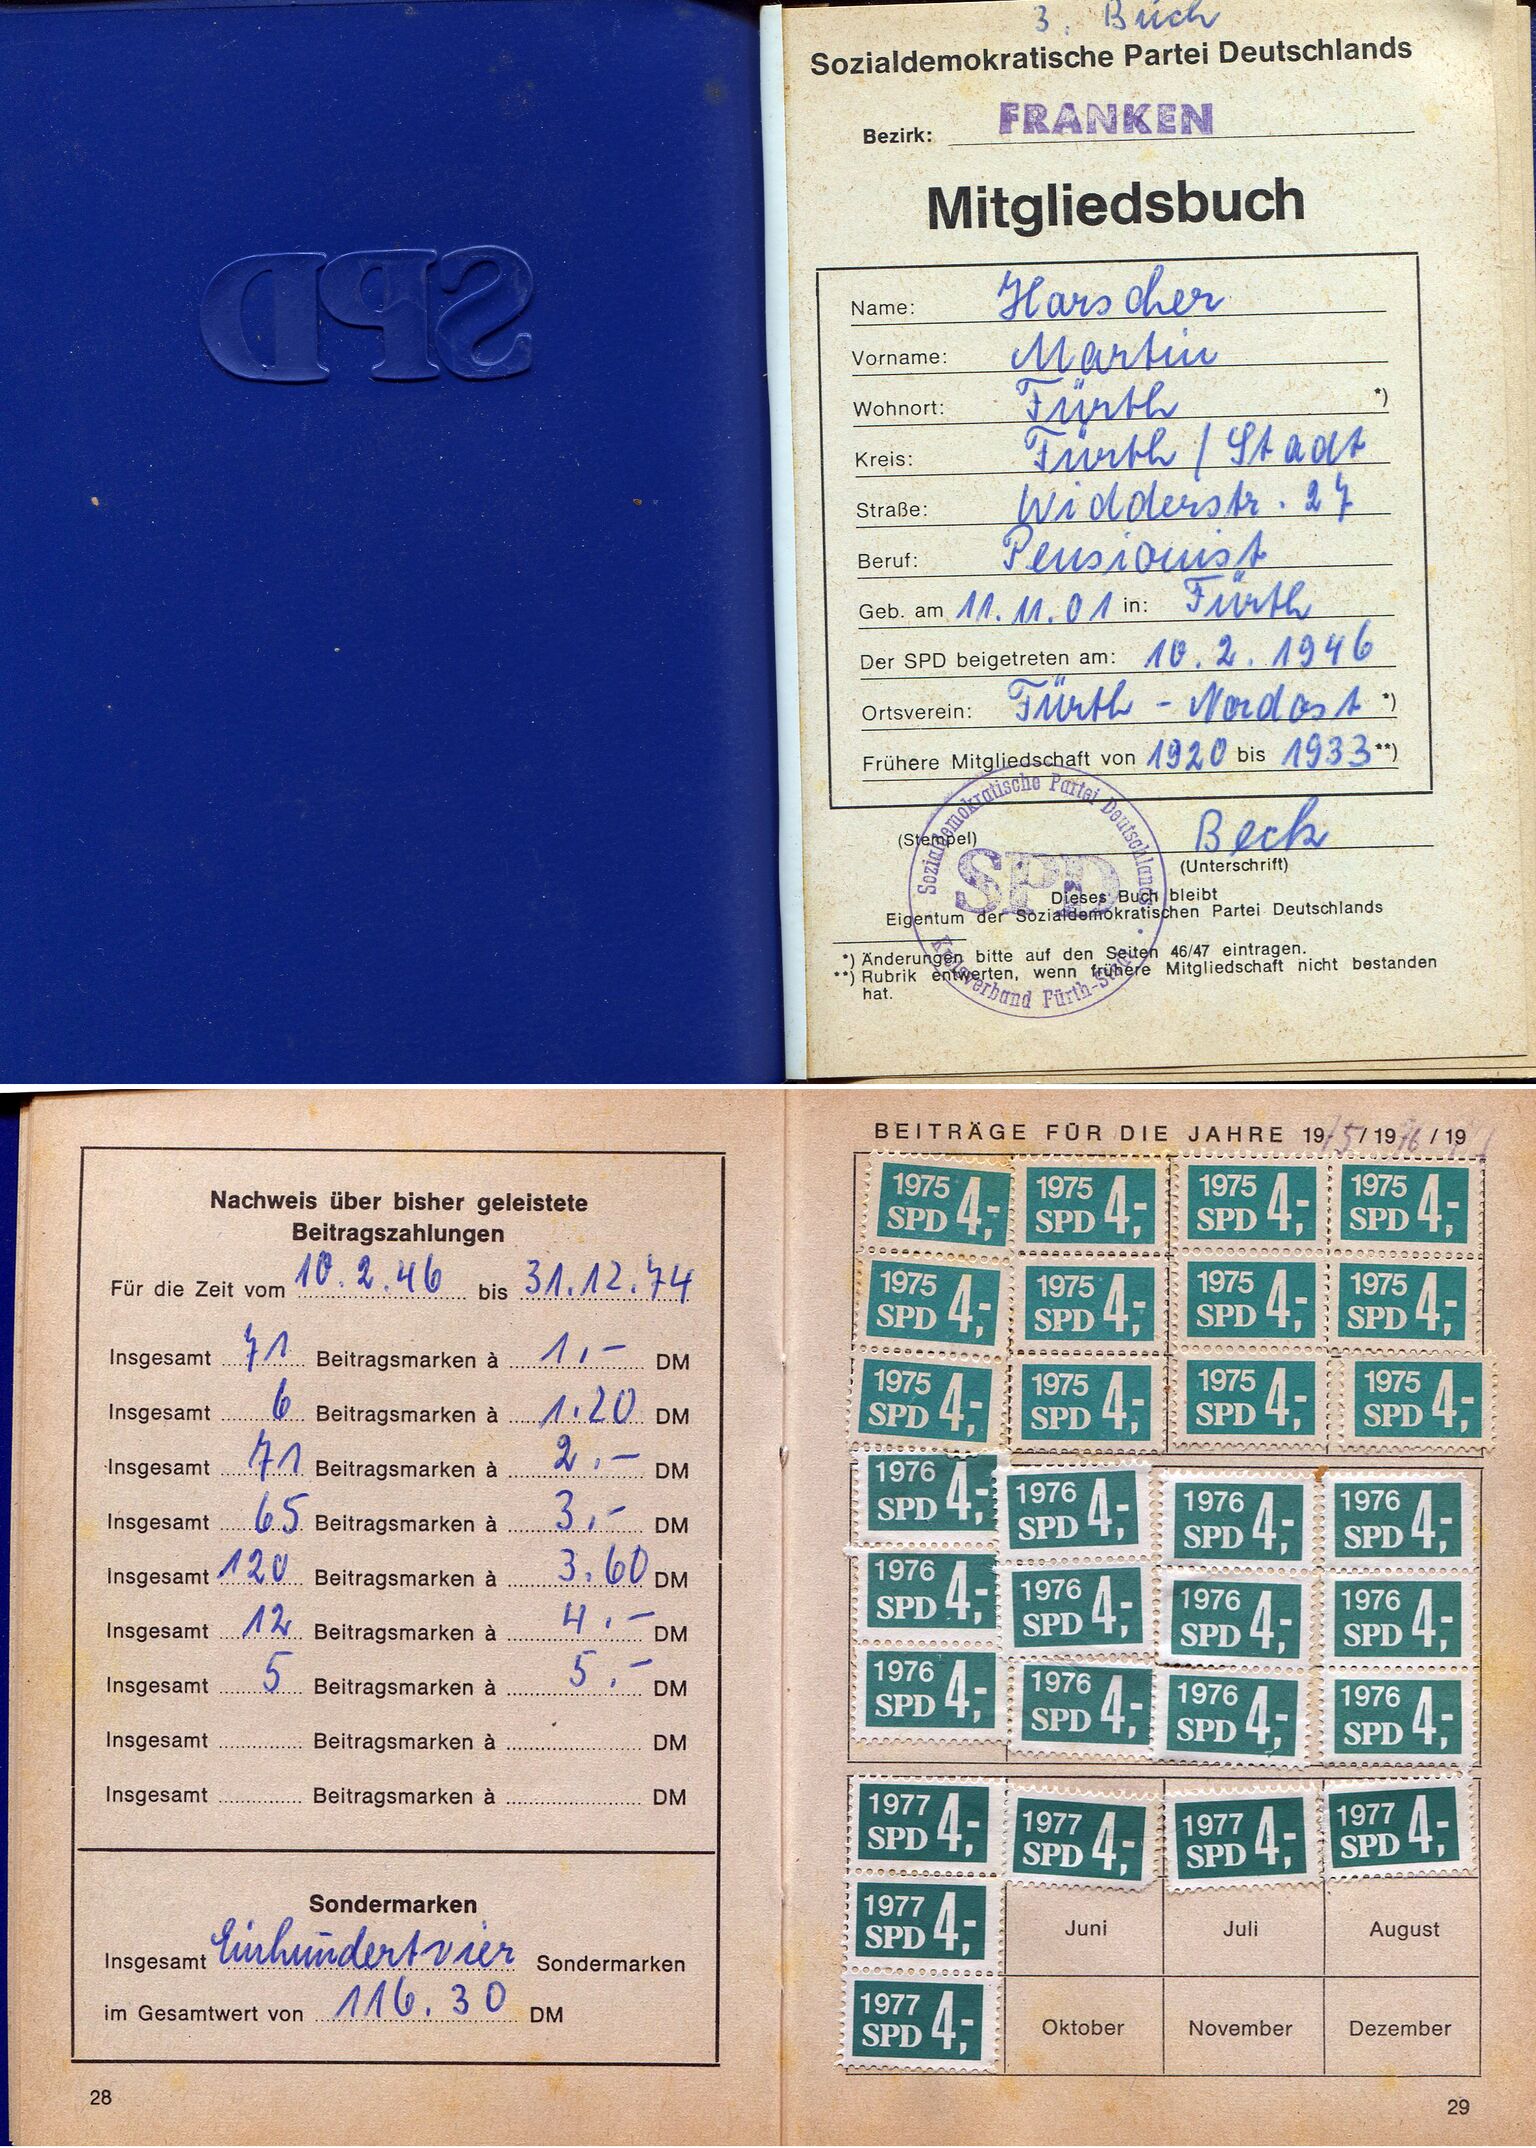 SPD
3. Buch
Sozialdemokratische Partei Deutschlands
Bezirk: FRANKEN
Mitgliedsbuch
Name: Harscher
Vorname: Martin
Wohnort: Fürth *)
Kreis: Fürth / Stadt
Straße: Widderstr. 27
Beruf: Pensionist
Geb. am 11.11.01 in: Fürth
Der SPD beigetreten am: 10.2.1946
Ortsverein: Fürth - Nordost *)
Frühere Mitgliedschaft von 1920 bis 1933 **)
Sozialdemokratische Partei Deutschlands
SPD
Kreisverband Fürth-Stadt
(Stempel) Beck
(Unterschrift)
Dieses Buch bleibt
Eigentum der Sozialdemokratischen Partei Deutschlands
*) Änderungen bitte auf den Seiten 46/47 eintragen.
**) Rubrik entwerten, wenn frühere Mitgliedschaft nicht bestanden
hat.
Nachweis über bisher geleistete
Beitragszahlungen
Für die Zeit vom 10.2.46 bis 31.12.74
Insgesamt 71 Beitragsmarken à 1,- DM
Insgesamt 6 Beitragsmarken à 1.20 DM
Insgesamt 71 Beitragsmarken à 2.- DM
Insgesamt 65 Beitragsmarken à 3,- DM
Insgesamt 120 Beitragsmarken à 3.60 DM
Insgesamt 12 Beitragsmarken à 4.- DM
Insgesamt 5 Beitragsmarken à 5.- DM
Insgesamt Beitragsmarken à DM
Insgesamt Beitragsmarken à DM
Sondermarken
Insgesamt Einhundertvier Sondermarken
im Gesamtwert von 116.30 DM
28
BEITRÄGE FÜR DIE JAHRE 1975/1976/19
1975 SPD 4,- 1975 SPD 4,- 1975 SPD 4,- 1975 SPD 4,-
1975 SPD 4,- 1975 SPD 4,- 1975 SPD 4,- 1975 SPD 4,-
1975 SPD 4,- 1975 SPD 4,- 1975 SPD 4,- 1975 SPD 4,-
1976 SPD 4,- 1976 SPD 4,- 1976 SPD 4,- 1976 SPD 4,-
1976 SPD 4,- 1976 SPD 4,- 1976 SPD 4,- 1976 SPD 4,-
1976 SPD 4,- 1976 SPD 4,- 1976 SPD 4,- 1976 SPD 4,-
1977 SPD 4,- 1977 SPD 4,- 1977 SPD 4,- 1977 SPD 4,-
1977 SPD 4,- Juni Juli August
1977 SPD 4,- Oktober November Dezember
29